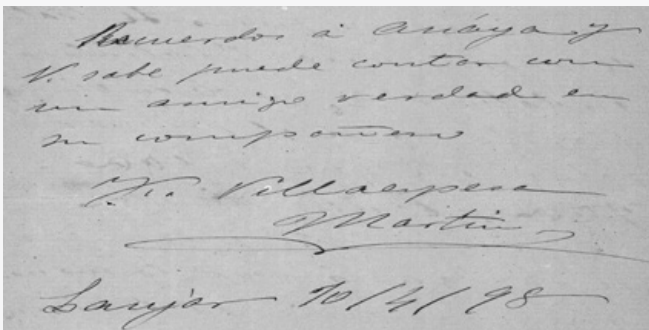 Recuerdos á Anáya y
V. sabe puede contar con
un amigo verdad en
su compañero
F. Villaespesa
Martin
Laujar 10/4/98